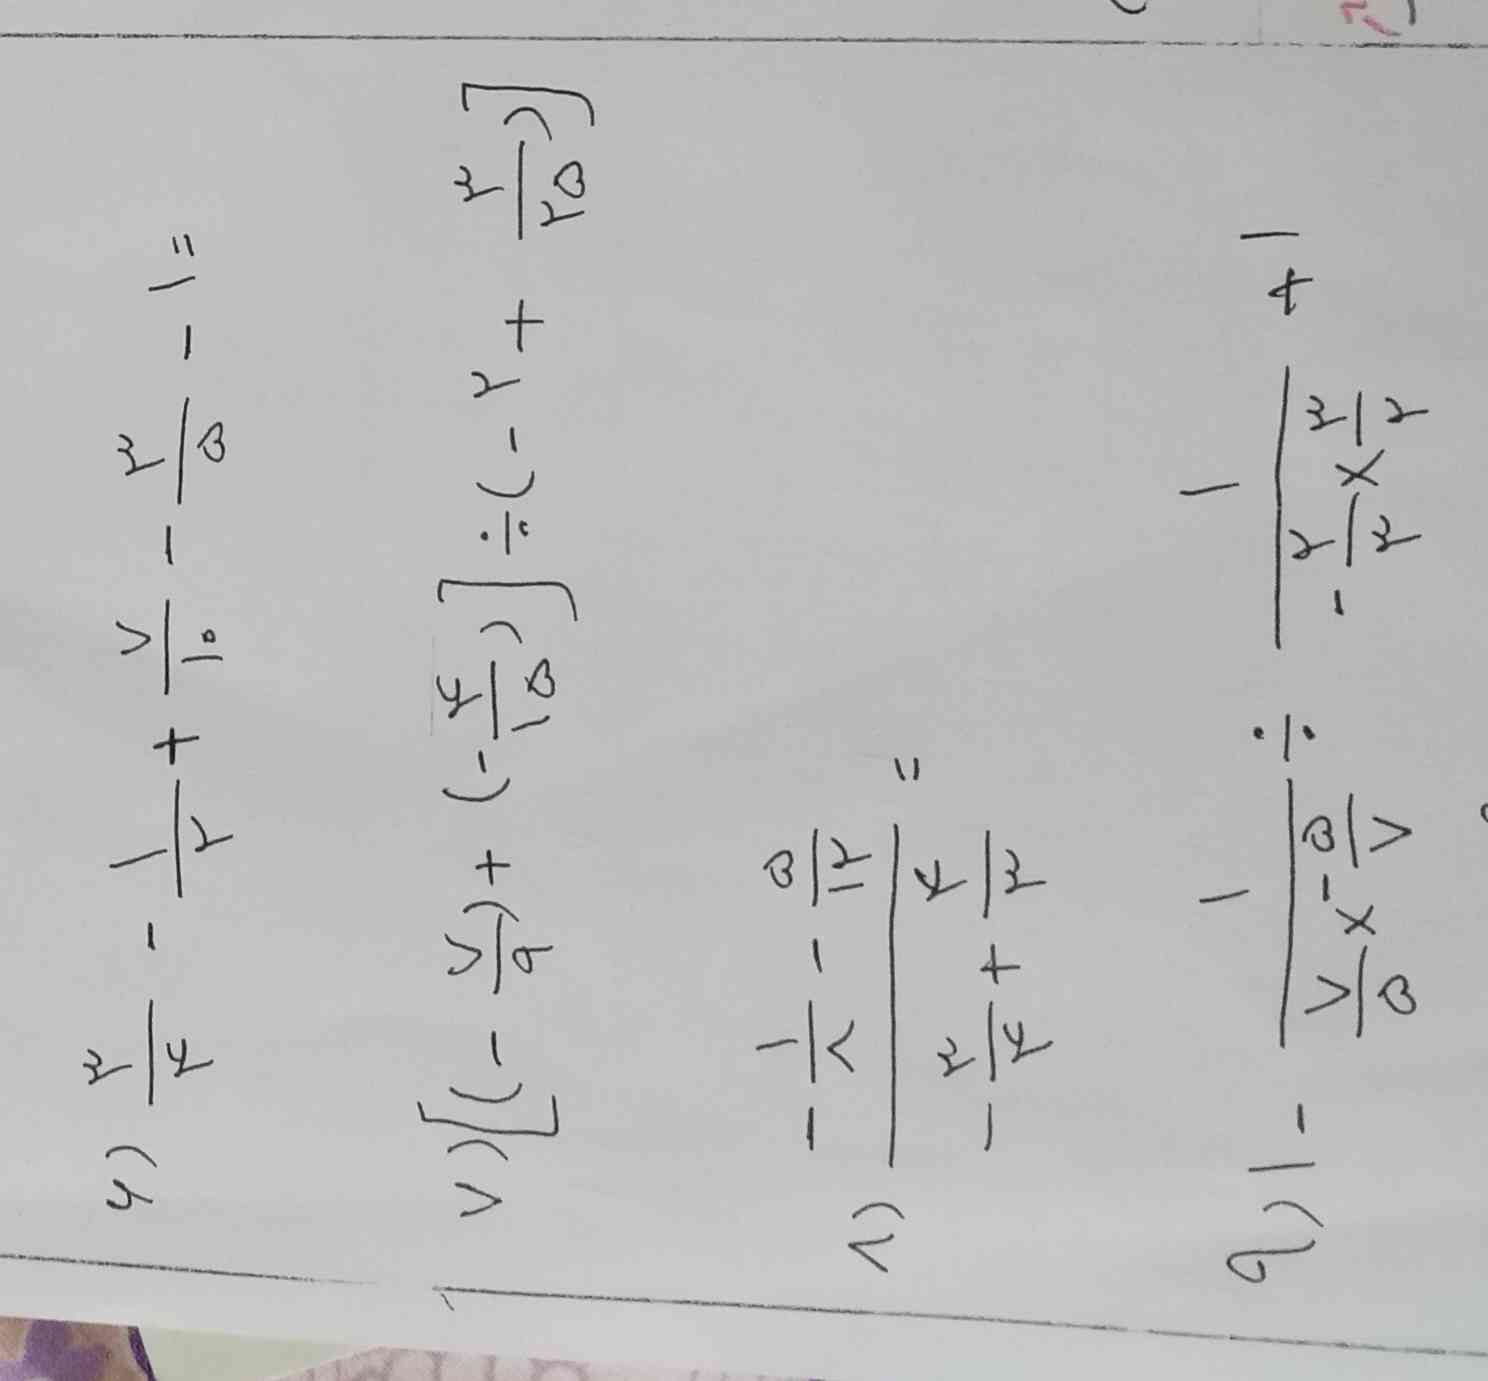 ۶) ۳/۴ - ۱/۲ + ۷/۱۰ - ۳/۵ - ۱ =
۷) [(- ۷/۹) + (- ۴/۱۵)] ÷ (- ۲ + ۳/۲۵)]
۸) (- ۱/۸ - ۵/۱۲) / (- ۳/۴ + ۴/۳) =
۹) ۱ - ۱/(۷/۵ × - ۵/۷) ÷ ۱/(- ۲/۳ × ۳/۲) + ۱